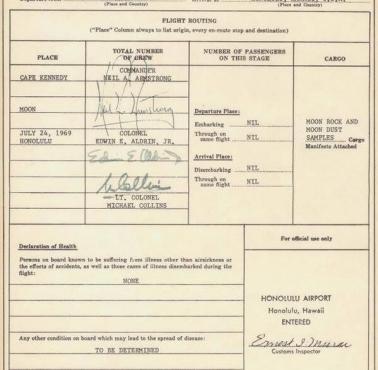 (Place and Country)
(Place and Country)
FLIGHT ROUTING
("Place" Column always to list origin, every en-route stop and destination)
PLACE
TOTAL NUMBER OF CREW
NUMBER OF PASSENGERS ON THIS STAGE
CARGO
CAPE KENNEDY
COMMANDER
NEIL A. ARMSTRONG
MOON
Neil A. Armstrong
Departure Place:
Embarking NIL
Through on same flight NIL
MOON ROCK AND
MOON DUST
SAMPLES Cargo
Manifests Attached
JULY 24, 1969
HONOLULU
COLONEL
EDWIN E. ALDRIN, JR.
Edwin E. Aldrin
Arrival Place:
Disembarking NIL
Through on same flight NIL
M Collins
LT. COLONEL
MICHAEL COLLINS
Declaration of Health
Persons on board known to be suffering from illness other than airsickness or
the effects of accidents, as well as those cases of illness disembarked during the
flight:
NONE
For official use only
HONOLULU AIRPORT
Honolulu, Hawaii
ENTERED
Ernest I. Murai
Customs Inspector
Any other condition on board which may lead to the spread of disease:
TO BE DETERMINED